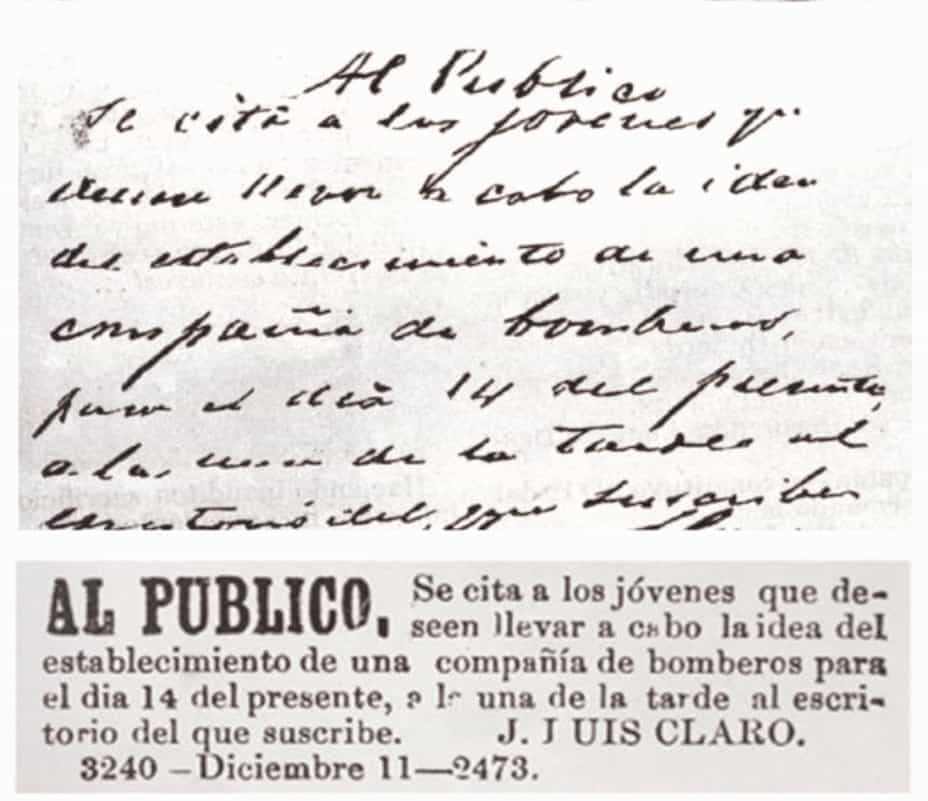 Al Publico
Se cita a los jovenes q.
deseen llevar a cabo la idea
del establecimiento de una
compañia de bomberos,
para el dia 14 del presente,
a la una de la tarde al
escritorio del que suscribe
AL PUBLICO. Se cita a los jóvenes que de-
seen llevar a cabo la idea del
establecimiento de una compañía de bomberos para
el dia 14 del presente, a la una de la tarde al escri-
torio del que suscribe. J. J UIS CLARO.
3240 —Diciembre 11—2473.